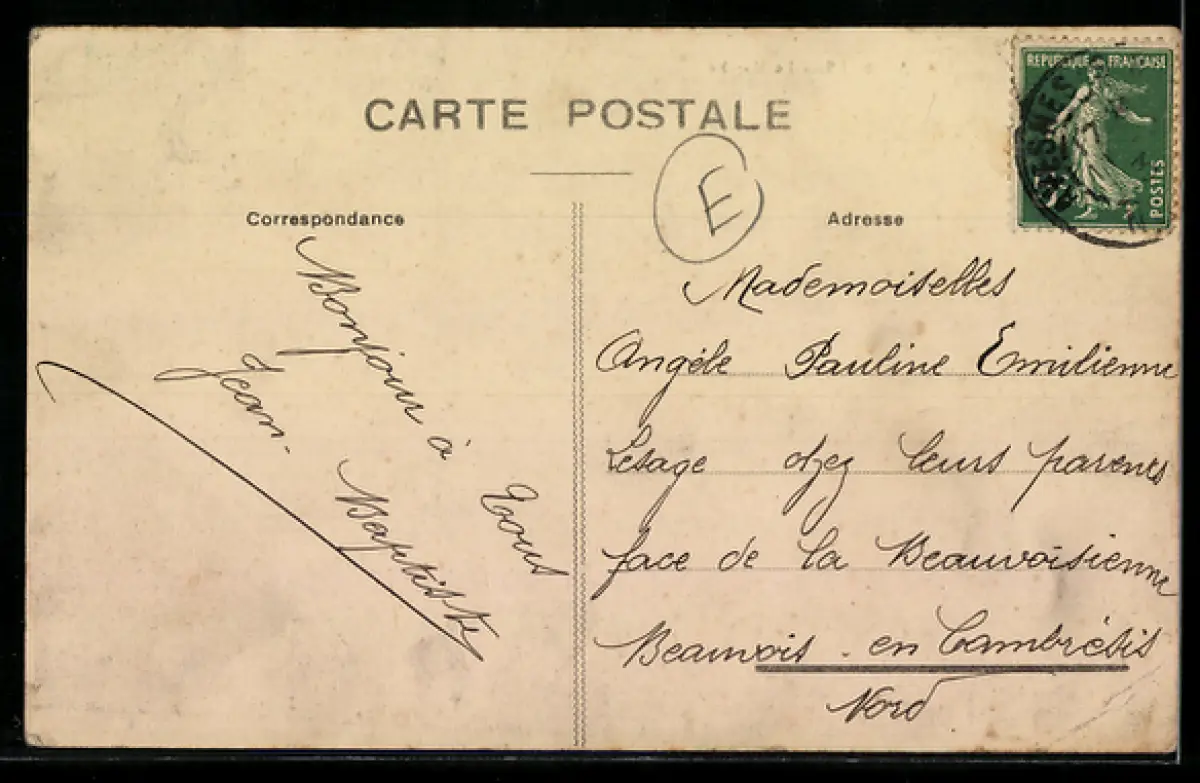 CARTE POSTALE
REPUBLIQUE FRANCAISE
POSTES
E
Correspondance
Adresse
Bonjour à
Tous
Jean-
Baptiste
Mademoiselles
Angéle Pauline Emilienne
Lesage chez leurs parents
face de la Beauvoisienne
Beauvois - en Cambrésis
Nord